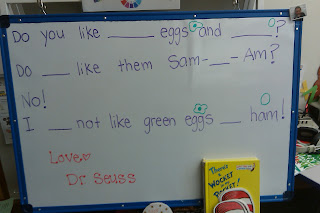 Do you like _____ eggs and _____?
Do ___ like them Sam-___-Am?
No!
I ___ not like green eggs ___ ham!
Love
Dr Seuss
There's
a
WOCKET
in my
POCKET!